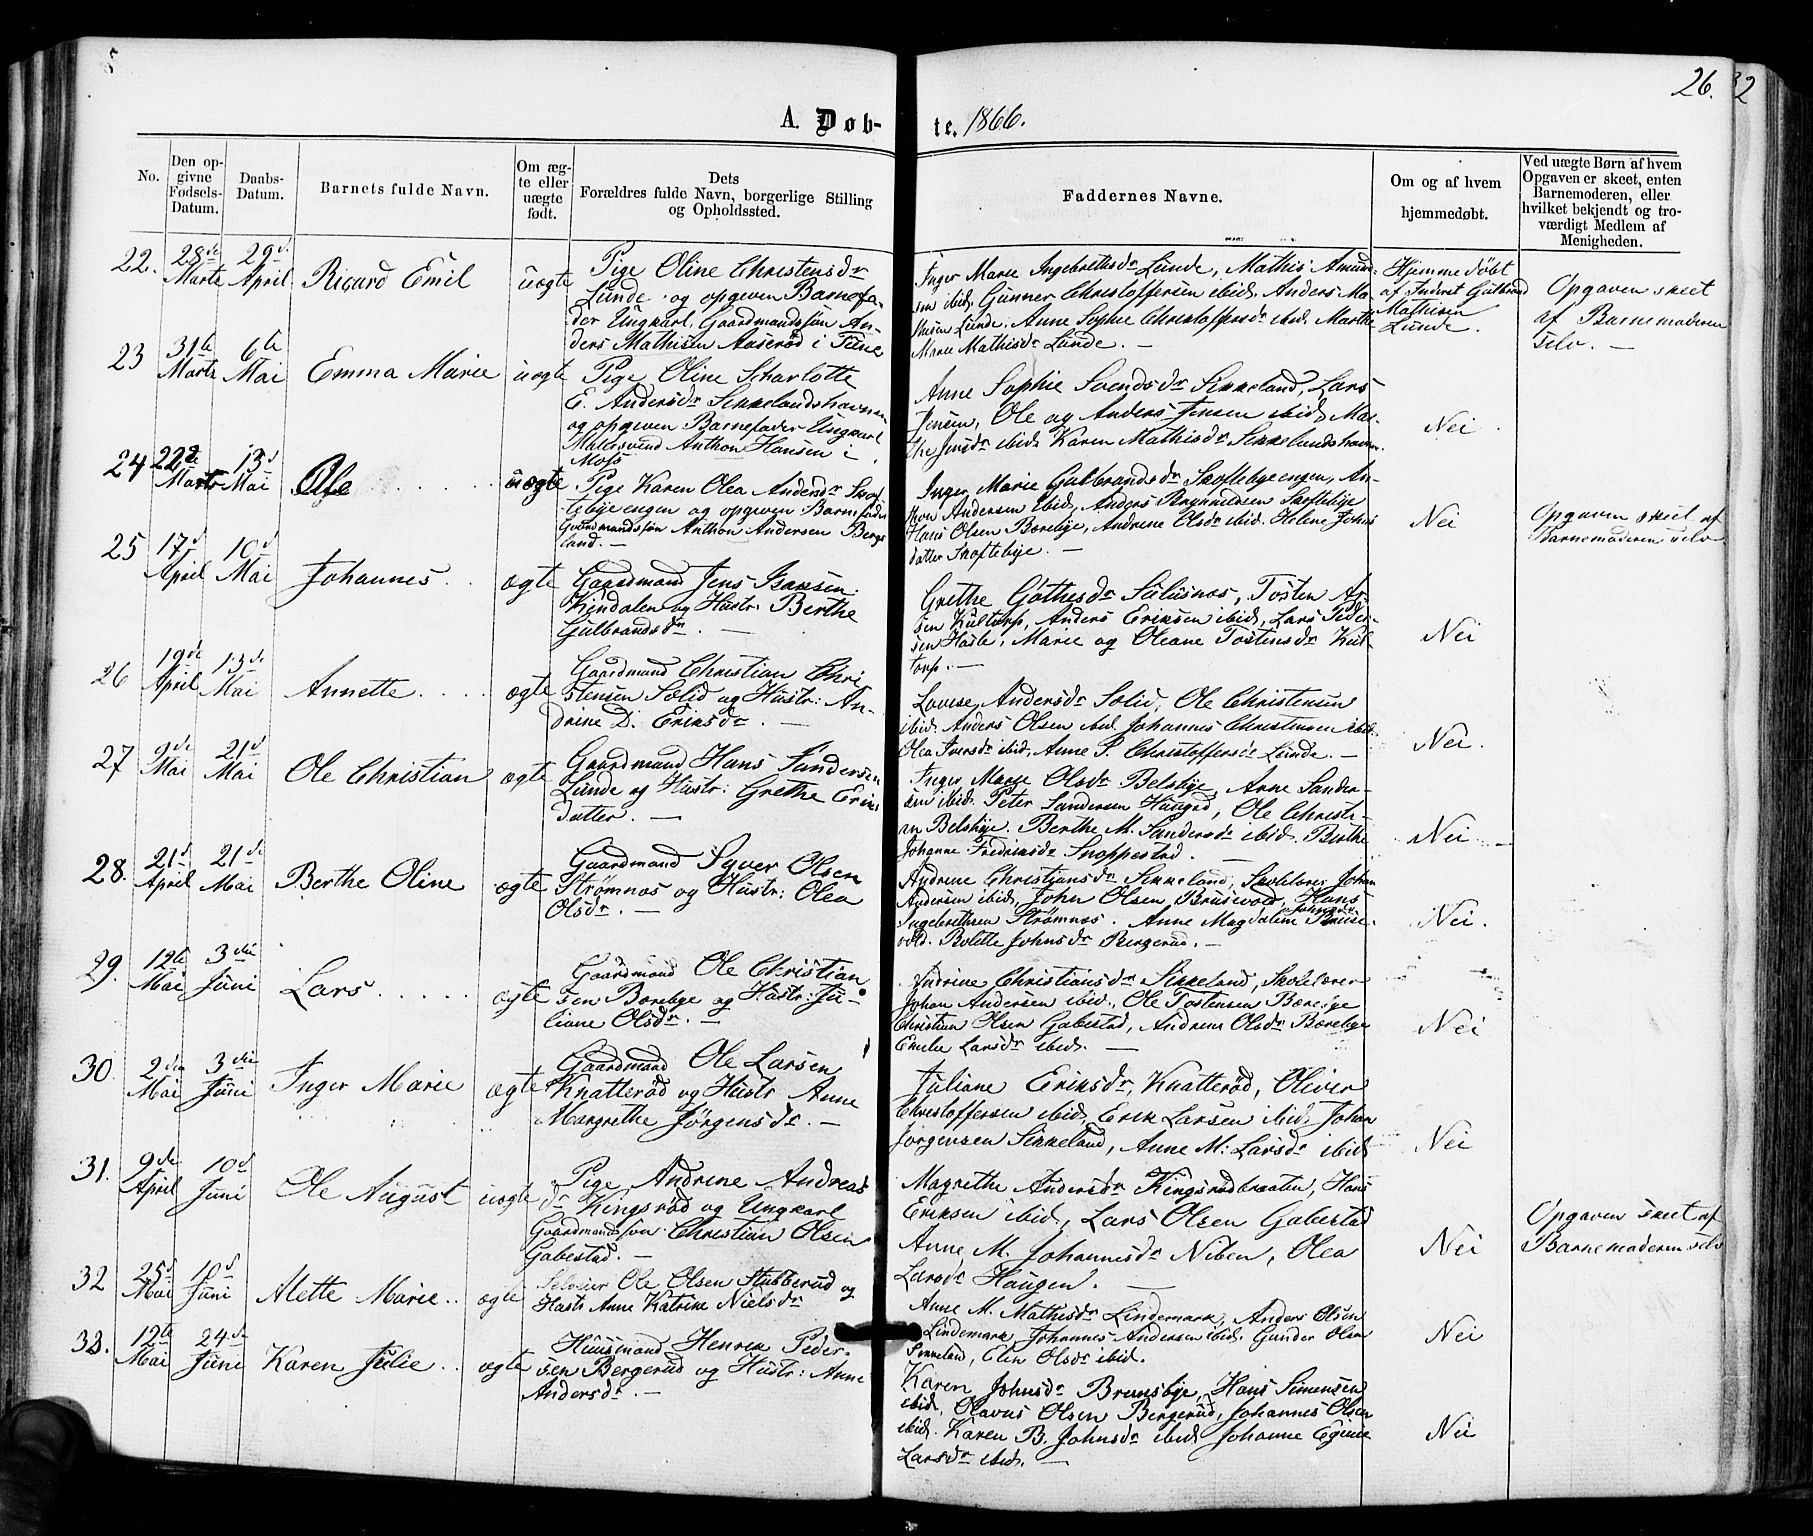 26.
32
A. Døb-
te. 1866.
No.
Den op-
givne
Fødsels-
Datum.
Daabs-
Datum.
Barnets fulde Navn.
Om æg-
te eller
uægte
født.
Dets
Forældres fulde Navn, borgerlige Stilling
og Opholdssted.
Faddernes Navne.
Om og af hvem
hjemmedøbt.
Ved uægte Børn af hvem
Opgaven er skeet, enten
Barnemoderen, eller
hvilket bekjendt og tro-
værdigt Medlem af
Menigheden.
22.
28de
Marts
29d
April
Ricard Emil
uægte
Pige Oline Christensdr
Lunde og opgiven Barnefa-
der Ungkarl, Gaardmandssøn An-
ders Mathisen Aaserød i Tune
Inger Marie Ingebrethsdr Lunde, Mathis Amund-
sen ibid, Gunner Christoffersen ibid, Anders Ma-
thisen Lunde, Anne Sophie Christoffersdr ibid, Marthe
Marie Mathisdr Lunde. —
Hjemmedøbt
af Inderst Gulbrand
Mathisen
Lunde.
Opgaven skeet
af Barnemoderen
selv. —
23
31te
Marts
6te
Mai
Emma Marie
uægte
Pige Oline Scharlotte
E. Andersdr Sikkelandshavnen
og opgiven Barnefader Ungkarl
Møllersvend Anthon Hansen i
Moss
Anne Sophie Svendsdr Sikkeland, Lars
Jensen, Ole og Anders Jensen ibid, Mar-
the Jensdr ibid, Karen Mathisdr Sikkelandshavn.
Nei
24
22de
Marts
13d
Mai
Ole
uægte
Pige Karen Olea Andersdr Skof-
tebyeengen og opgiven Barnefader
Gaardmandssøn Anthon Andersen Bergs
land. —
Inger Marie Gulbrandsdr Skoftebyeengen, An-
thon Andersen ibid, Anders Brynildsen Skoftebye
Hans Olsen Bærebye, Andrine Olsdr ibid, Helene Johns
datter Skoftebye. —
Nei
Opgaven skeet af
Barnemoderen selv
25
17d
April
10d
Mai
Johannes
ægte
Gaardmand Jens Hansen
Kjndalen og Hustr: Berthe
Gulbrandsdr. —
Grethe Gathesdr Saltnæs, Tosten An-
sen Kultorp, Anders Eriksen ibid, Lars Peder-
sen Hasle, Marie og Oleane Tostensdr Kul-
torp. —
Nei
26
19de
April
13de
Mai
Annette
ægte
Gaardmand Christian Chri
stensen Solid og Hustr: An-
drine D. Eriksdr. —
Lovise Andersdr Solid, Ole Christensen
ibid, Anders Olsen ibid Johannes Christensen ibid
Olea Iversdr ibid, Anne P. Christoffersdr Lunde. —
Nei.
27
9de
Mai
21d
Mai
Ole Christian
ægte
Gaardmand Hans Sandersen
Lunde og Hustr: Grethe Eriks
datter. —
Inger Marie Olsdr Belsbye, Arne Sander-
sen ibid, Peter Sandersen Haugsd, Ole Christi-
an Belsbye, Berthe M. Sandersdr ibid, Berthe
Johanne Fredriksdr Snoppestad. —
Nei
28.
21d
April
21de
Mai
Berthe Oline
ægte
Gaardmand Syver Olsen
Strømnæs og Hustr: Olea
Olsdr. —
Andrine Christiansdr Sikkeland, Skolelærer Johan
Andersen ibid, John Olsen Brusevold, Hans
Ingebrethsen Strømnæs. Anne Magdalene Johnsdr Bruse-
vold. Bolette Johnsdr Bergerud. —
Nei.
29.
12te
Mai
3die
Juni
Lars
ægte
Gaardmand Ole Christian
sen Bærebye og Hustr: Ju-
liane Olsdr. —
Andrine Christiansdr Sikkeland, Skolelærer
Johan Andersen ibid, Ole Tostensen Bærebye
Christian Olsen Gabestad, Andrine Olsdr Bærebye
Emilie Larsdr ibid. —
Nei
30.
2den
Mai
3die
Juni
Inger Marie
ægte
Gaardmand Ole Larsen
Knatterød og Hustr Anne
Margrethe Jørgensdr. —
Juliane Eriksdr, Knatterød, Oliver
Christoffersen ibid, Erik Larsen ibid, Johan
Jørgensen Sikkeland, Anne M: Larsdr ibid
Nei
31.
9de
April
10d
Juni
Ole August
uægte
Pige Andrine Andreas
dr Kingsrød og Ungkarl
Gaardmandssøn Christian Olsen
Gabestad. —
Magrethe Andersdr Kingsrødbraaten, Hans
Eriksen ibid, Lars Olsen Gabestad
Anne M. Johannesdr Niben, Olea
Larsdr Haugen. —
Nei
Opgaven skeet af
Barnemoderen selv
32
25d
Mai
10d
Juni
Alette Marie
ægte
Selveier Ole Olsen Stubberud og
Hustr Anne Katrine Nielsdr
Anne M. Mathisdr Lindemark, Anders Olsen
Lindemark, Johannes Andersen ibid, Gunder Olsen
Sikkeland, Elin Olsdr ibid.
Nei
33.
12te
Mai
24de
Juni
Karen Julie
ægte
Huusmand Henrik Peder-
sen Bergerud og Hustr: Anne
Andersdr. —
Karen Johnsdr Brunsbye, Hans Simensen
ibid, Olavus Olsen Bergerud, Johannes Olsen
ibid. Karen B. Johnsdr ibid Johanne Eginie
Larsdr ibid. —
Nei